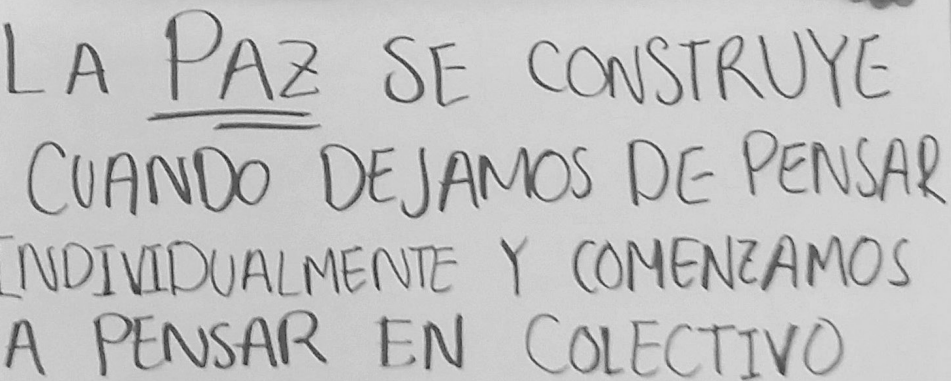 LA PAZ SE CONSTRUYE
CUANDO DEJAMOS DE PENSAR
INDIVIDUALMENTE Y COMENZAMOS
A PENSAR EN COLECTIVO